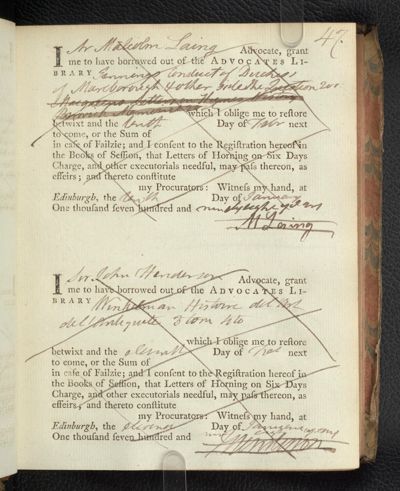 47.
I Mr Malcolm Laing Advocate, grant
me to have borrowed out of the ADVOCATES LI-
BRARY Jennings Conduct of Duchess
of Marlborough & other
which I oblige me to restore
betwixt and the tenth Day of Febr next
to come, or the Sum of
in case of Failzie; and I consent to the Registration hereof in
the Books of Session, that Letters of Horning on Six Days
Charge, and other executorials needful, may pass thereon, as
effeirs; and thereto constitute
my Procurators: Witness my hand, at
Edinburgh, the tenth Day of January
One thousand seven hundred and ninety eight years
M Laing
I Mr John Henderson Advocate, grant
me to have borrowed out of the ADVOCATES LI-
BRARY Winkelman Histoire del Art
del Antiquité 3 tom 4to
which I oblige me to restore
betwixt and the eleventh Day of next
to come, or the Sum of
in case of Failzie; and I consent to the Registration hereof in
the Books of Session, that Letters of Horning on Six Days
Charge, and other executorials needful, may pass thereon, as
effeirs; and thereto constitute
my Procurators: Witness my hand, at
Edinburgh, the eleventh Day of January
One thousand seven hundred and
Henderson